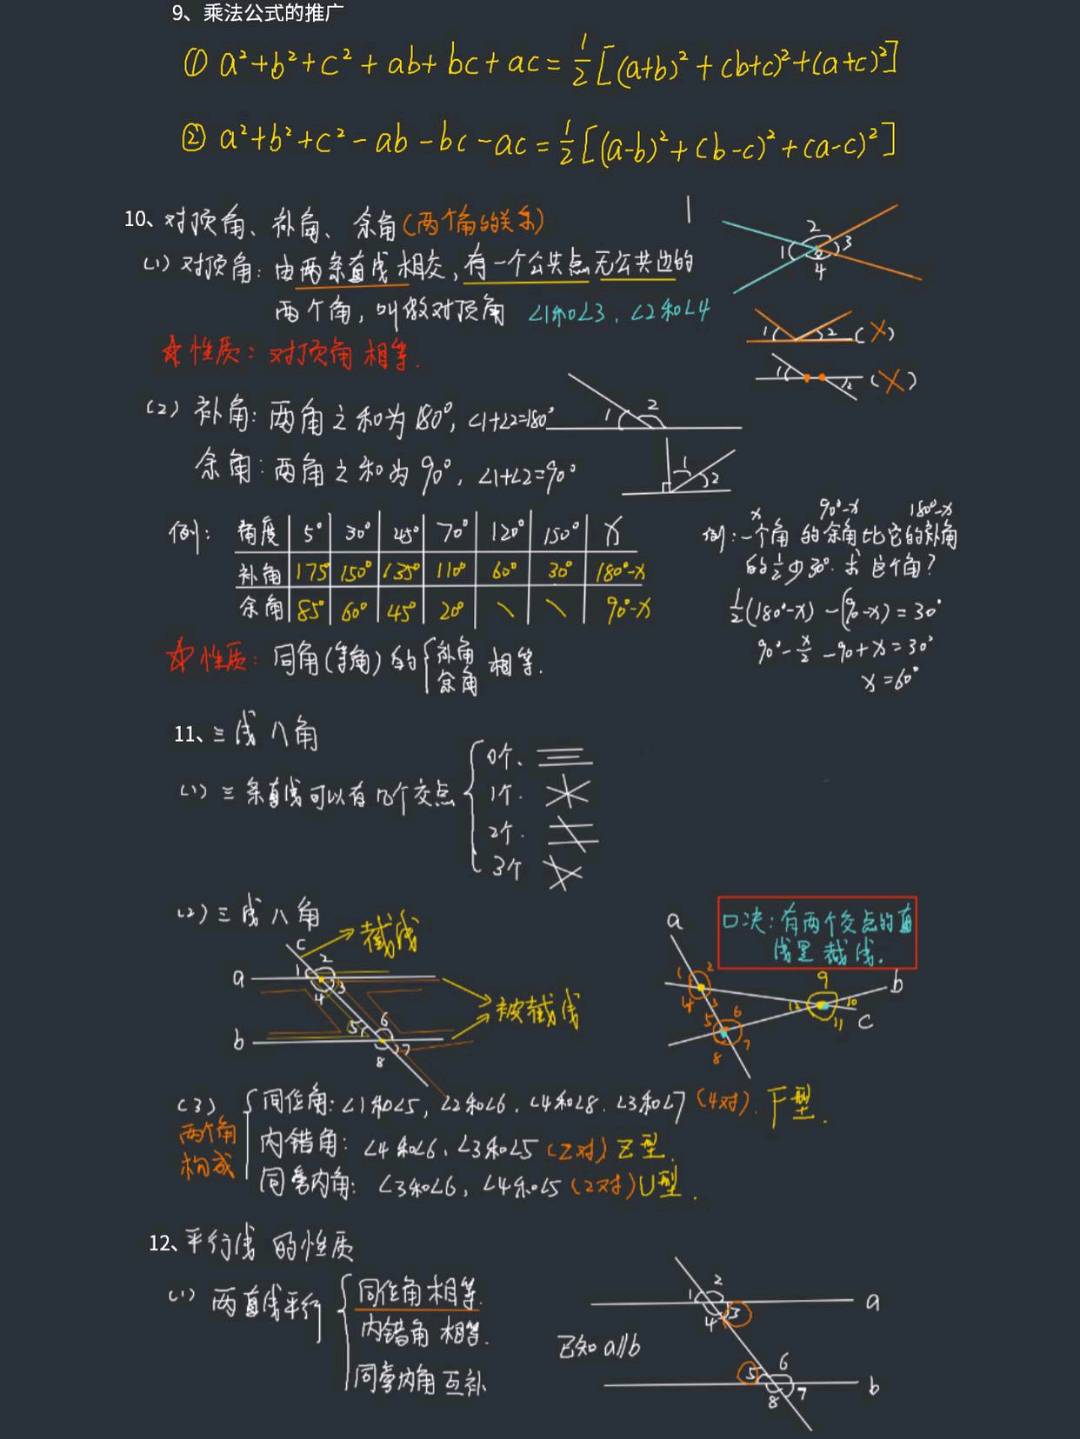 9、乘法公式的推广
① a²+b²+c²+ab+bc+ac=½[(a+b)²+(b+c)²+(a+c)²]
② a²+b²+c²-ab-bc-ac=½[(a-b)²+(b-c)²+(a-c)²]
10、对顶角、补角、余角(两个角的关系)
(1) 对顶角: 由两条直线相交, 有一个公共点无公共边的
两个角, 叫做对顶角 ∠1和∠3, ∠2和∠4
1 2 3 4
1 2 (X)
1 2 (X)
☆性质: 对顶角相等.
(2) 补角: 两角之和为180°, ∠1+∠2=180°
1 2
余角: 两角之和为90°, ∠1+∠2=90°
1 2
例: 角度 5° 30° 45° 70° 120° 150° X
补角 175 150° 135° 110° 60° 30° 180°-X
余角 85° 60° 45° 20° \ \ 90°-X
X 90°-X 180°-X
例: 一个角的余角比它的补角
的½少30°. 求这个角?
½(180°-X)-(90-X)=30°
90°-X/2-90+X=30°
X=60°
☆性质: 同角(等角)的{补角 余角 相等.
11、三线八角
(1) 三条直线可以有几个交点
0个、
1个.
2个.
3个
(2) 三线八角
c 截线
a 1 2 3 4
被截线
b 5 6 7 8
口决: 有两个交点的直
线是截线.
a 1 2 3 4 9 10 11 12 b
5 6 7 8 c
(3) 两个角构成
同位角: ∠1和∠5, ∠2和∠6, ∠4和∠8, ∠3和∠7 (4对). F型.
内错角: ∠4和∠6, ∠3和∠5 (2对) Z型.
同旁内角: ∠3和∠6, ∠4和∠5 (2对) U型.
12、平行线的性质
(1) 两直线平行
同位角相等.
内错角相等.
同旁内角互补
已知 a∥b
1 2 3 4 a
5 6 7 8 b